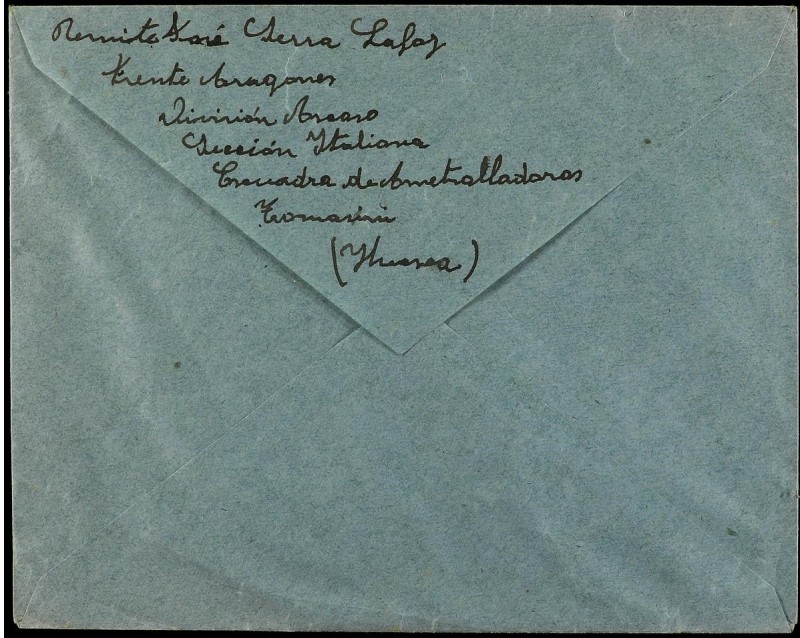 Remite José Serra Lafoz
Frente Aragones
División Ascaso
Sección Italiana
Escuadra de Ametralladoras
Tomasini
(Huesca)